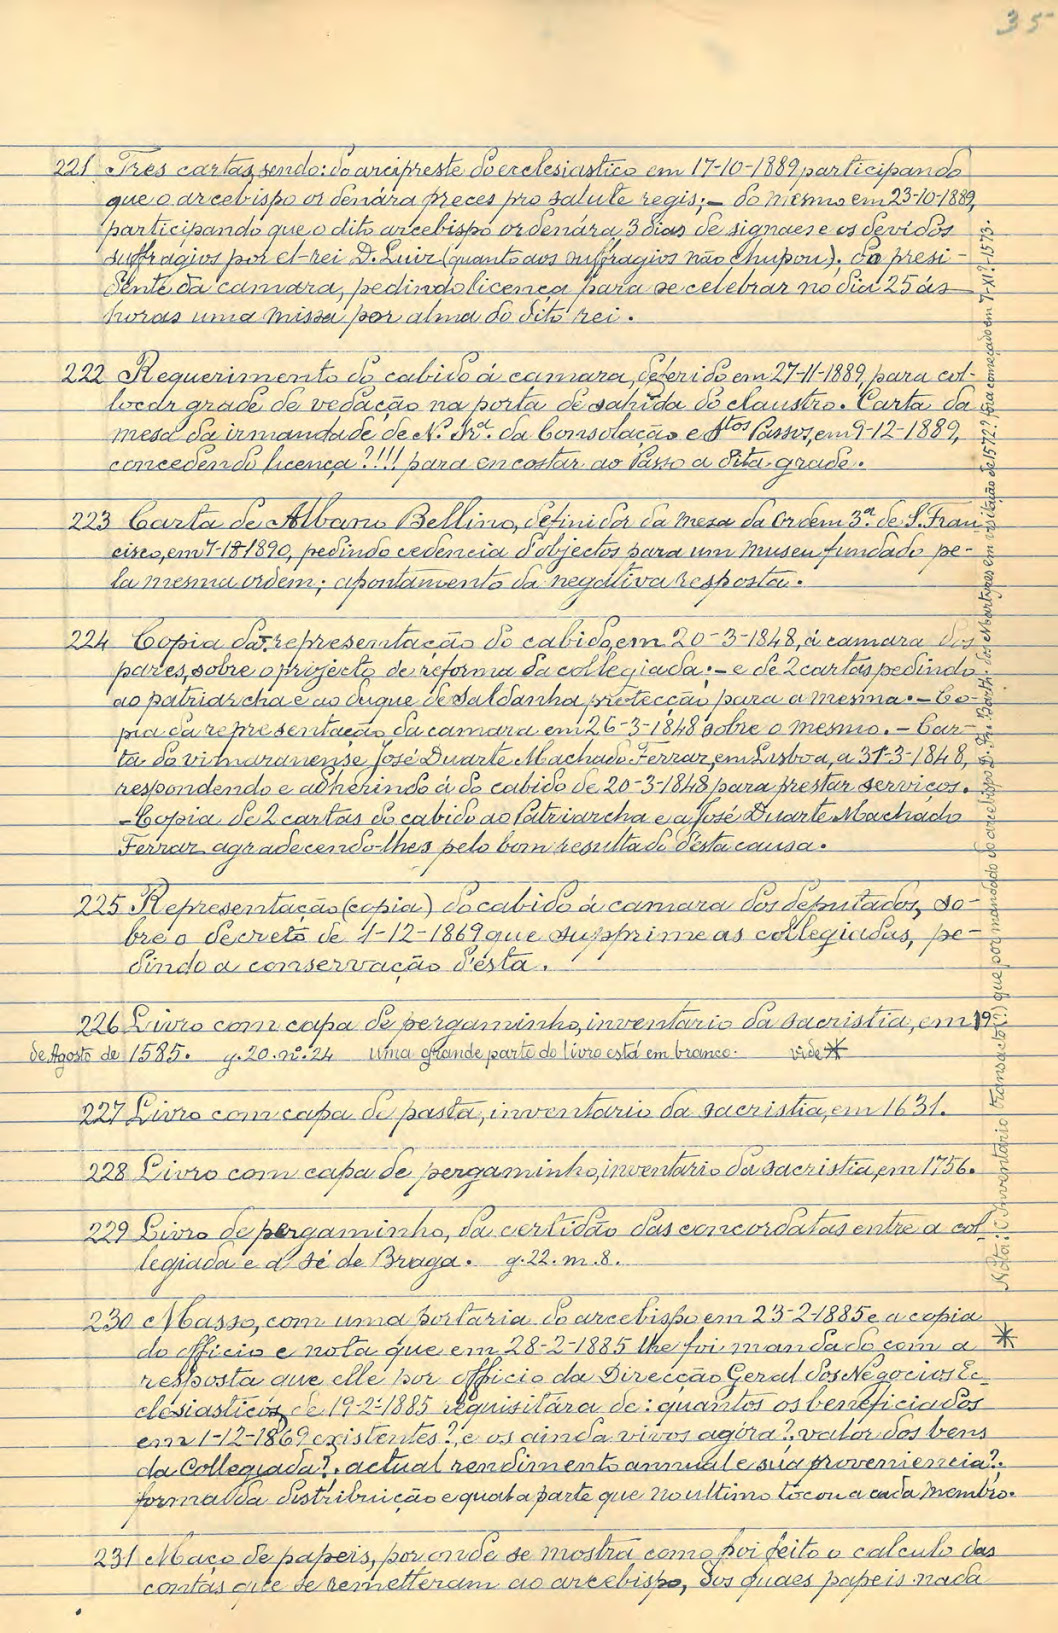 35
221 Tres cartas, sendo: do arcipreste do ecclesiastico em 17-10-1889 participando
que o arcebispo ordenára preces pro salute regis; – do mesmo em 23-10-1889,
participando que o dito arcebispo ordenára 3 dias de signaes e os devidos
suffragios por el-rei D. Luiz (quanto aos suffragios não chupou); da presi-
dente da camara, pedindo licença para se celebrar no dia 25 ás
horas uma missa por alma do dito rei.
222 Requerimento do cabido á camara, deferido em 27-11-1889, para col-
locar grade de vedação na porta de sahida do claustro. Carta da
mesa da irmandade de N. Srª. da Consolação e Stos Passos, em 9-12-1889,
concedendo licença?!!! para encostar ao Passo a dita grade.
223 Carta de Albano Bellino, definidor da mesa da Ordem 3ª. de S. Fran
cisco, em 1890, pedindo cedencia d'objectos para um museu fundado pe-
la mesma ordem; apontamento da negativa resposta.
224 Copia da representação do cabido, em 20-3-1848, á camara dos
pares, sobre o projecto de reforma da collegiada; – e de 2 cartas pedindo
ao patriarcha e ao duque de Saldanha protecção para a mesma. – Co-
pia da representação da camara em 26-3-1848 sobre o mesmo. – Car-
ta do vimaranense José Duarte Machado Ferraz, em Lisboa, a 31-3-1848,
respondendo e adherindo á do cabido de 20-3-1848 para prestar serviços.
– Copia de 2 cartas do cabido ao Patriarcha e a José Duarte Machado
Ferraz agradecendo-lhes pelo bom resultado d'ésta causa.
225 Representação (copia) do cabido á camara dos deputados, so-
bre o decreto de 1-12-1869 que supprime as collegiadas, pe-
dindo a conservação d'ésta.
226 Livro com capa de pergaminho, inventario da sacristia, em 19
de Agosto de 1585. g. 20. nº. 24 uma grande parte do livro está em branco. vide *
227 Livro com capa de pasta, inventario da sacristia, em 1631.
228 Livro com capa de pergaminho, inventario da sacristia, em 1756.
229 Livro de pergaminho, da certidão das concordatas entre a col-
legiada e a sé de Braga. g. 22. m. 8.
230 Masso, com uma portaria do arcebispo em 23-2-1885 e a copia
do officio e nota que em 28-2-1885 lhe foi mandado com a
resposta que elle por officio da Direcção Geral dos Negocios Ec-
clesiasticos, de 19-2-1885 requisitára de: quantos os beneficiados
em 1-12-1869 existentes?, e os ainda vivos agóra?, valor dos bens
da Collegiada?, actual rendimento annual e sua proveniencia?,
forma da distribuição e qual a parte que no ultimo tocou a cada membro.
231 Maço de papeis, por onde se mostra como foi feito o calculo das
contas que se remetteram ao arcebispo, dos quaes papeis nada
* Nota: O Inventário transacto(?) que por mandado do arcebispo D. Fr. Barth. dos Martyres em visitação de 1572? fora começado em 7-XI?-1573.